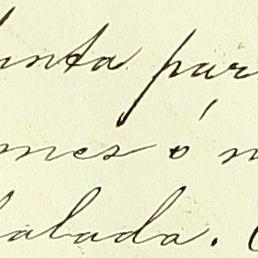 unta par
mes ó n
alada.